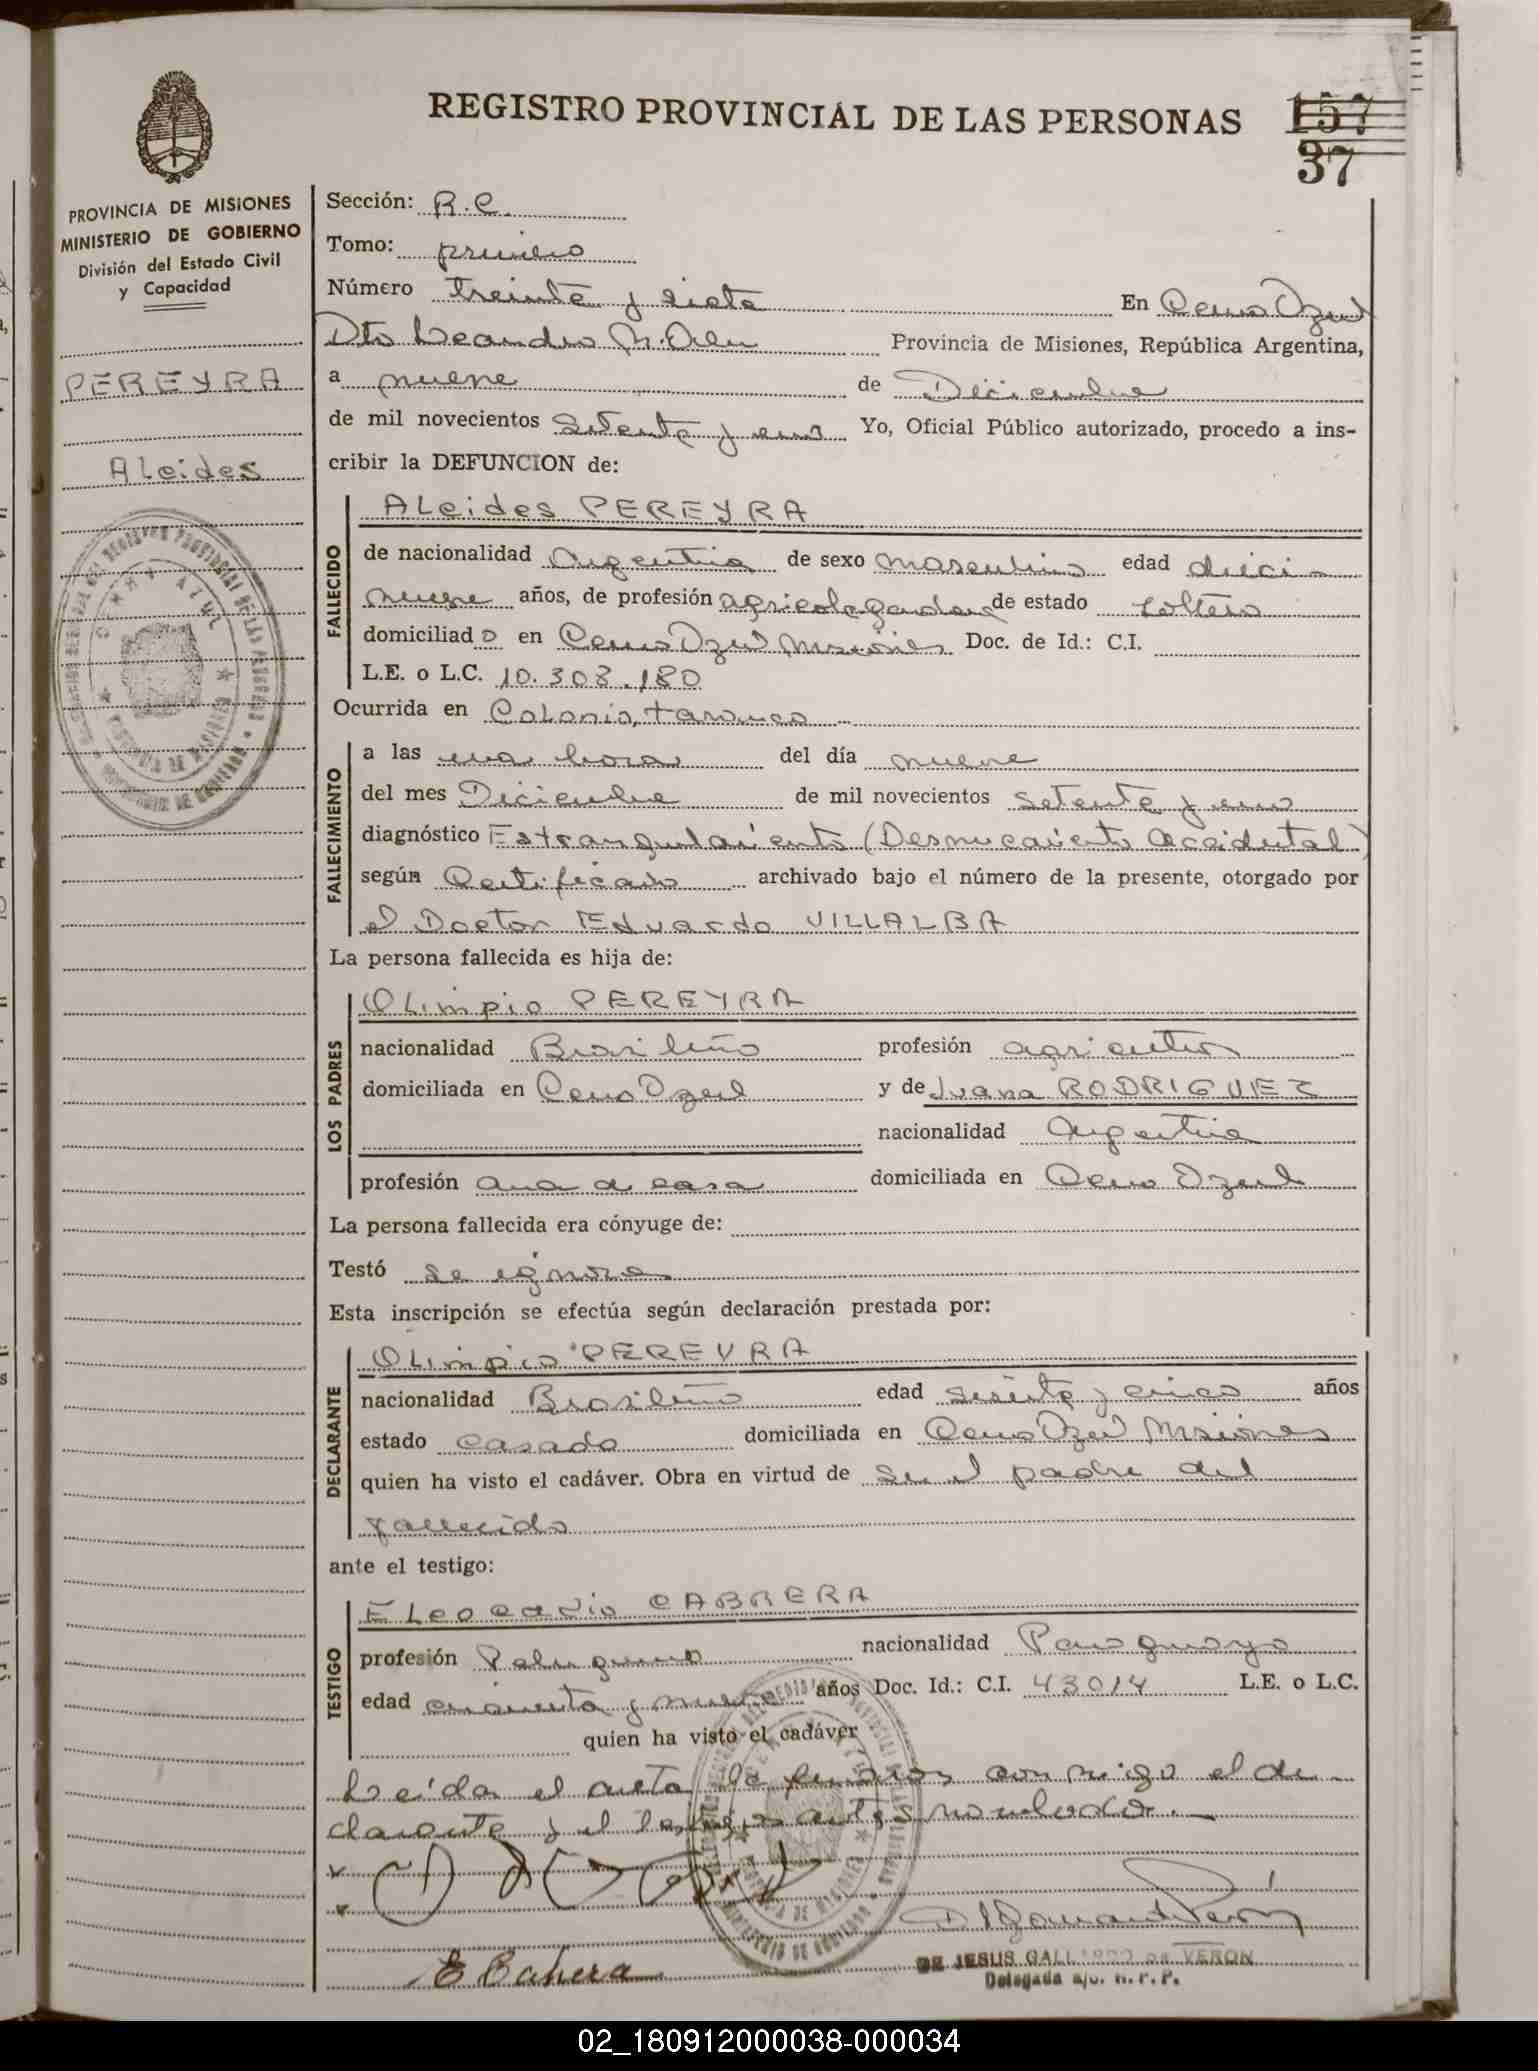 REGISTRO PROVINCIAL DE LAS PERSONAS
157
37
PROVINCIA DE MISIONES
MINISTERIO DE GOBIERNO
División del Estado Civil
y Capacidad
PEREYRA
ALcides
Sección: R.C.
Tomo: primero
Número treinta y siete En Cerro Azul
Dto Leandro N. Alem Provincia de Misiones, República Argentina,
a nueve de Diciembre
de mil novecientos setenta y uno Yo, Oficial Público autorizado, procedo a ins-
cribir la DEFUNCION de:
ALcides PEREYRA
FALLECIDO
de nacionalidad Argentina de sexo masculino edad dieci-
nueve años, de profesión agricola ganadera de estado soltero
domiciliado en Cerro Azul Misiones Doc. de Id.: C.I.
L.E. o L.C. 10.308.180
Ocurrida en Colonia, Taranco
FALLECIMIENTO
a las una hora del día nueve
del mes Diciembre de mil novecientos setenta y uno
diagnóstico Estrangulamiento (Desnucamiento Accidental)
según Certificado archivado bajo el número de la presente, otorgado por
el Doctor Eduardo VILLALBA
La persona fallecida es hija de:
LOS PADRES
OLimpio PEREYRA
nacionalidad Brasileño profesión agricultor
domiciliada en Cerro Azul y de Juana RODRIGUEZ
nacionalidad Argentina
profesión ama de casa domiciliada en Cerro Azul
La persona fallecida era cónyuge de:
Testó se ignora
Esta inscripción se efectúa según declaración prestada por:
DECLARANTE
OLimpio PEREYRA
nacionalidad Brasileño edad sesenta y cinco años
estado casado domiciliada en Cerro Azul Misiones
quien ha visto el cadáver. Obra en virtud de ser el padre del
fallecido
ante el testigo:
TESTIGO
ELeocadio CABRERA
profesión Peluquero nacionalidad Paraguayo
edad cincuenta y nueve años Doc. Id.: C.I. 43014 L.E. o L.C.
quien ha visto el cadáver
Leída el acta la firman conmigo el de-
clarante y el testigo antes nombrado.
E Cabrera
DE JESUS GALLARDO de VERON
Delegada a/c. R.P.P.
02_180912000038-000034